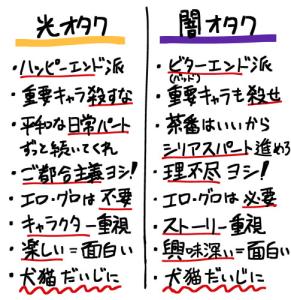 光オタク
・ハッピーエンド派
・重要キャラ殺すな
・平和な日常パート
ずっと続いてくれ
・ご都合主義ヨシ!
・エロ・グロは不要
・キャラクター重視
・楽しい=面白い
・犬猫だいじに
闇オタク
・ビターエンド派
(バッド)
・重要キャラも殺せ
・茶番はいいから
シリアスパート進めろ
・理不尽ヨシ!
・エロ・グロは必要
・ストーリー重視
・興味深い=面白い
・犬猫だいじに